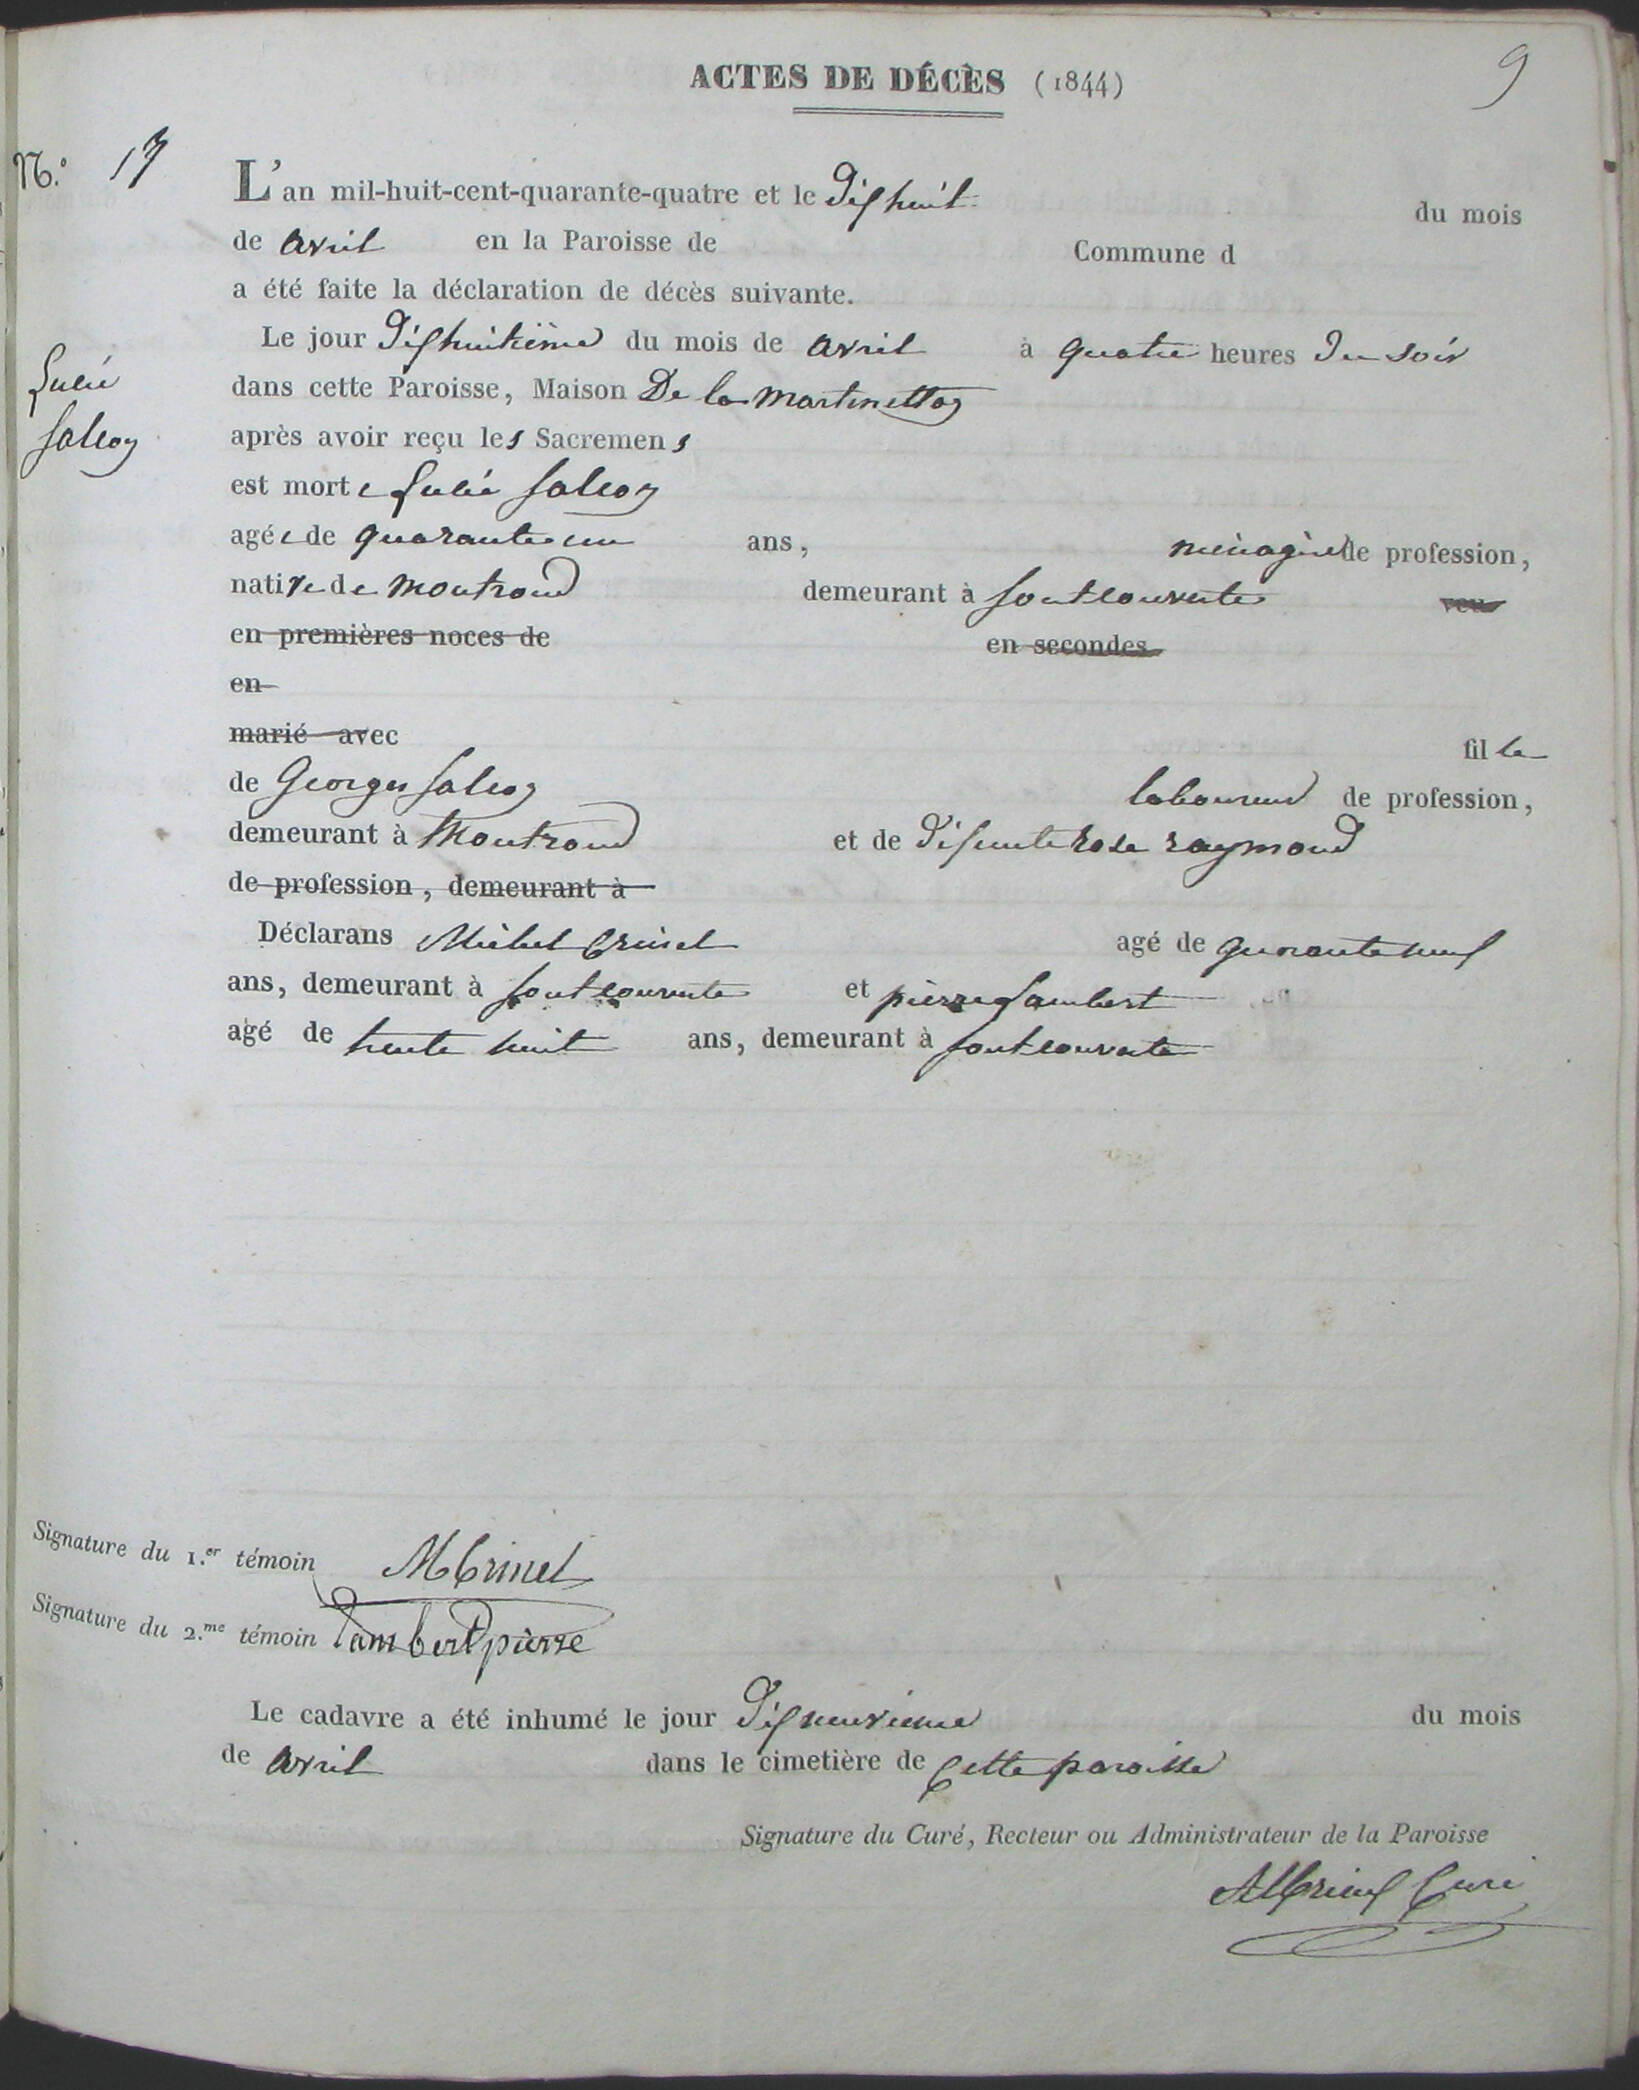 ACTES DE DÉCÈS (1844)
9
N.º 17
L'an mil-huit-cent-quarante-quatre et le dixhuit du mois
de avril en la Paroisse de Commune d
a été faite la déclaration de décès suivante.
Le jour dixhuitième du mois de avril à quatre heures du soir
dans cette Paroisse, Maison De la martinettaz
après avoir reçu les Sacremens
est morte Julie falcoz
Julie
falcoz
agée de quarante un ans, ménagère de profession,
native de montrond demeurant à fontcouverte veu
en premières noces de en secondes
en
marié avec fille
de Georges falcoz laboureur de profession,
demeurant à Montrond et de défunte rose raymond
de profession, demeurant à
Déclarans Michel agé de quarante neuf
ans, demeurant à fontcouverte et pierre Lambert
agé de trente huit ans, demeurant à fontcouverte
Signature du 1.er témoin
Signature du 2.me témoin Lambert pierre
Le cadavre a été inhumé le jour dixneuvieme du mois
de avril dans le cimetière de cette paroisse
Signature du Curé, Recteur ou Administrateur de la Paroisse
Curé